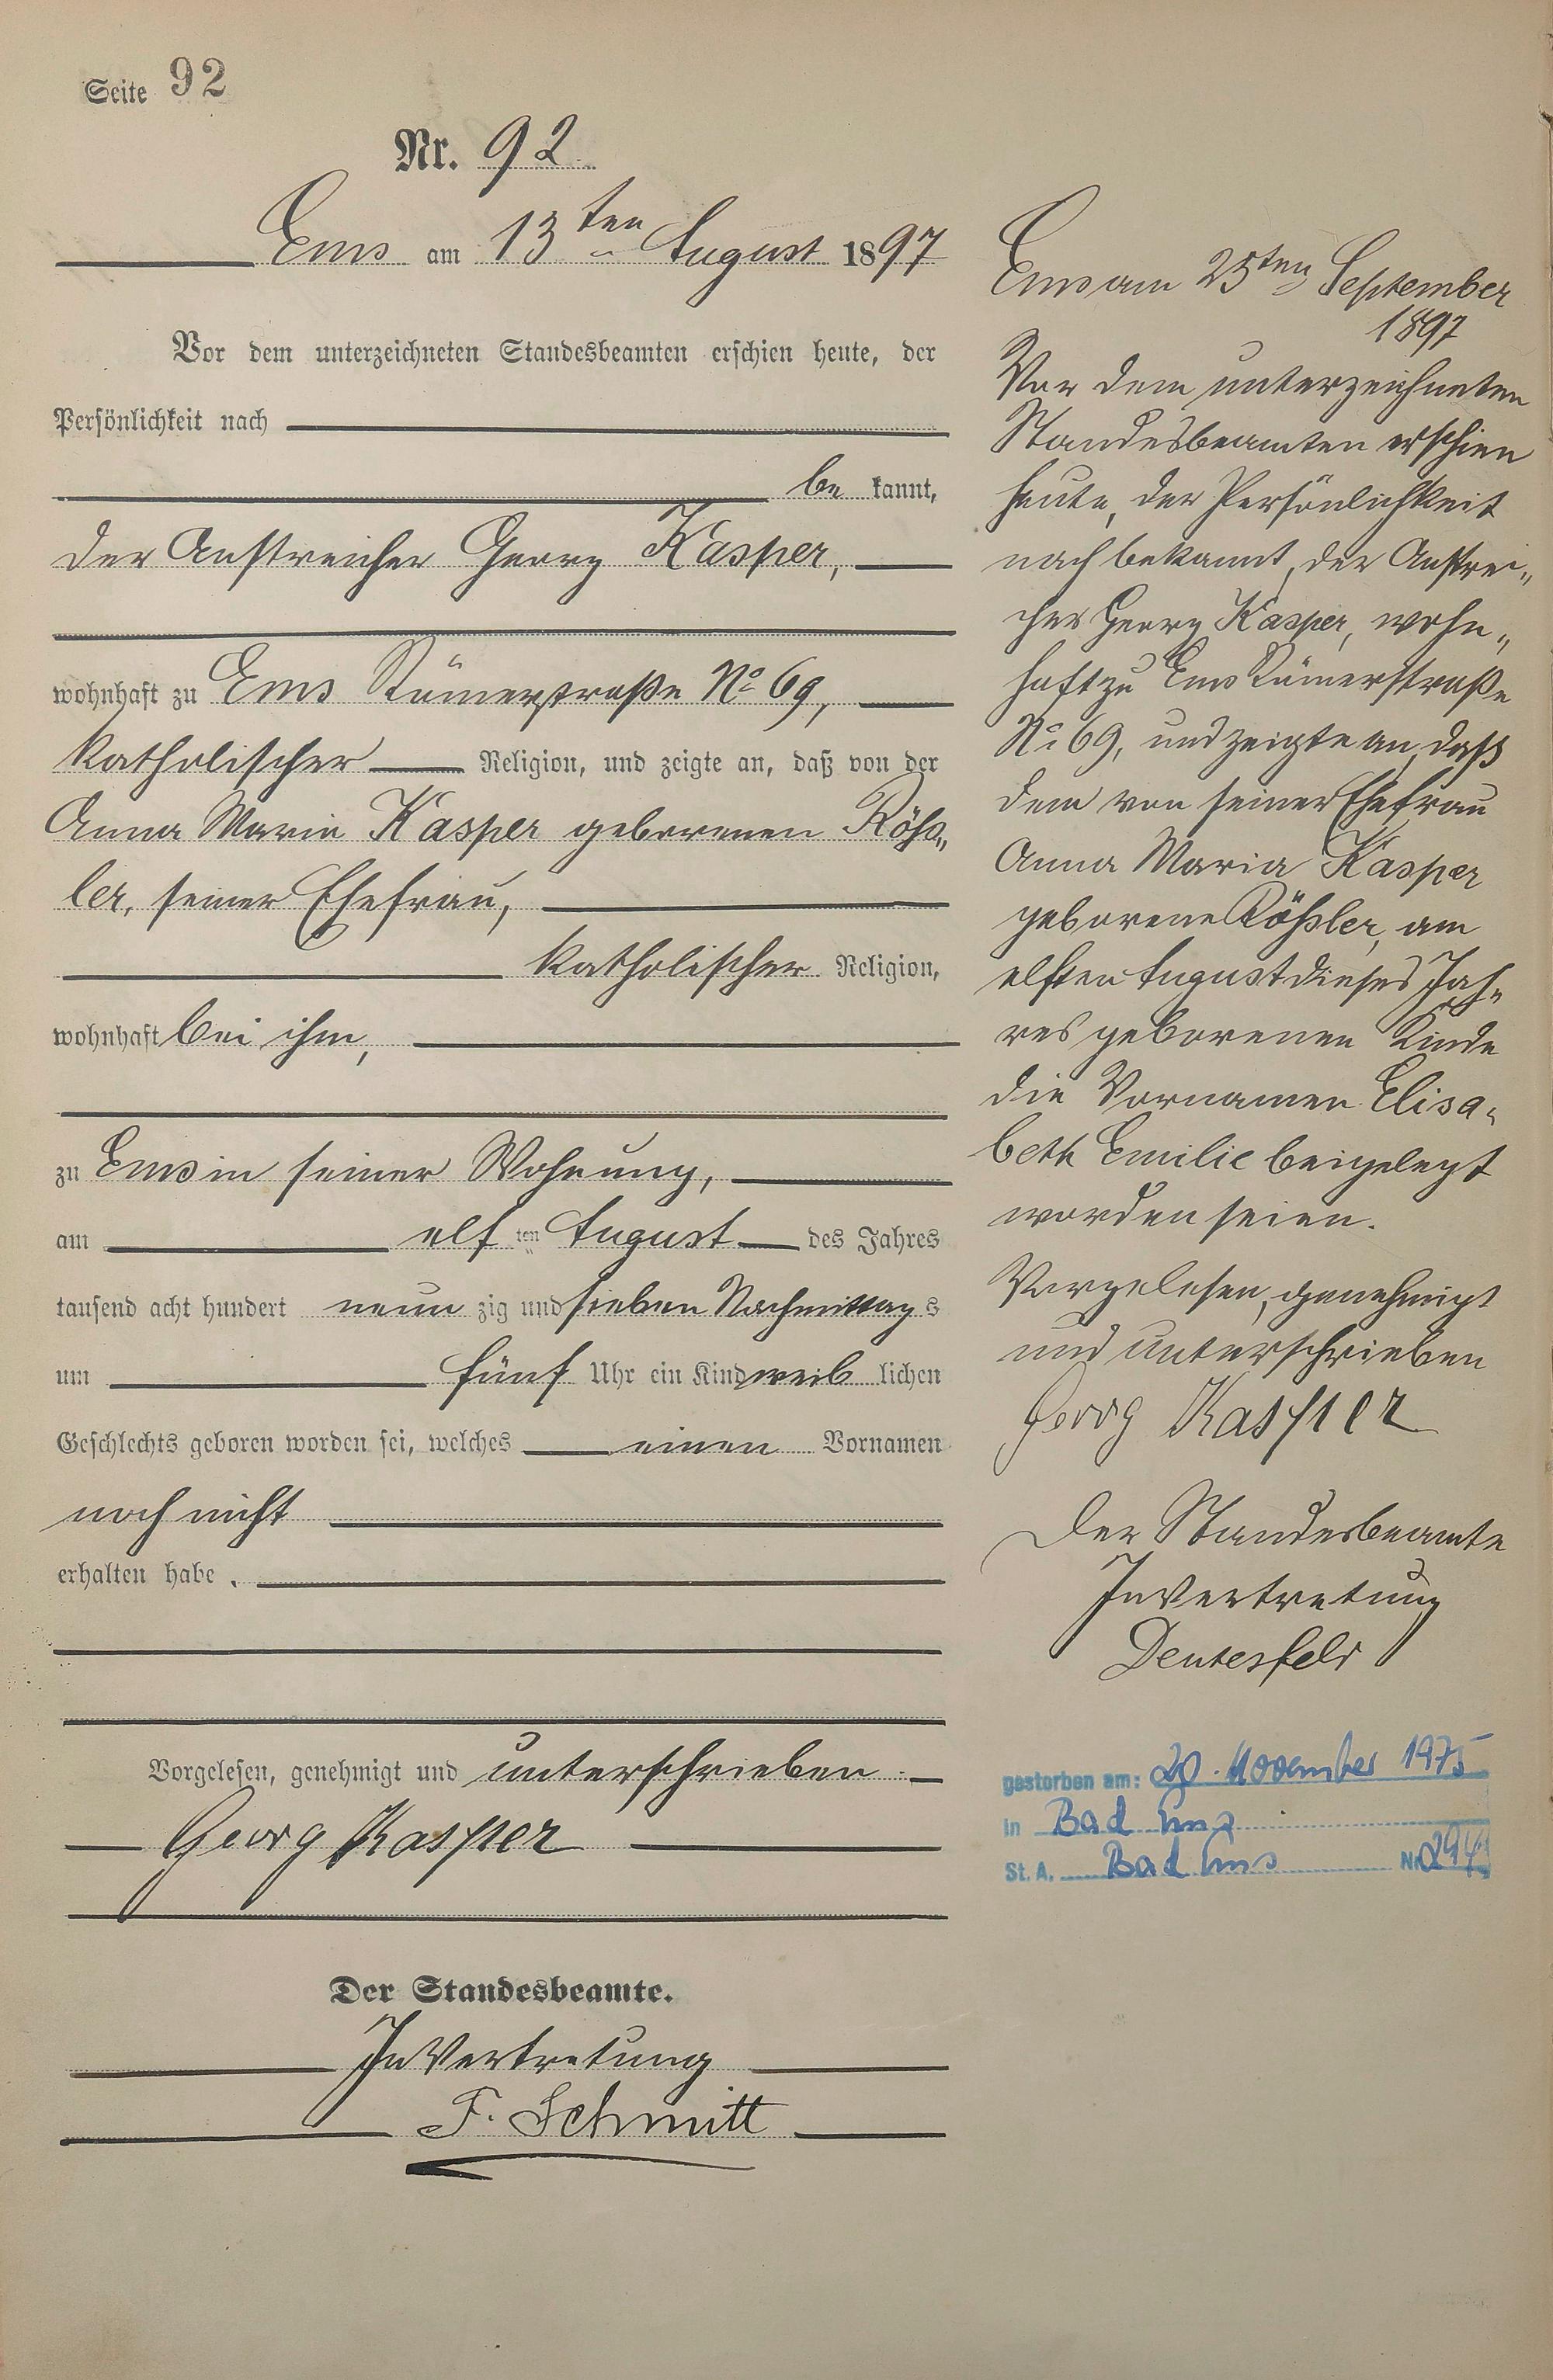 Seite 92
Nr. 92
Ems am 13ten August 1897
Vor dem unterzeichneten Standesbeamten erschien heute, der
Persönlichkeit nach
be kannt,
der Anstreicher Georg Kasper,
wohnhaft zu Ems Römerstraße No 69,
katholischer Religion, und zeigte an, daß von der
Anna Maria Kasper geborenen Röß„
ler, seiner Ehefrau,
katholischer Religion,
wohnhaft bei ihm,
zu Ems in seiner Wohnung,
am elf ten August des Jahres
tausend acht hundert neun zig und sieben Nachmittag s
um fünf Uhr ein Kind weib lichen
Geschlechts geboren worden sei, welches einen Vornamen
noch nicht
erhalten habe.
Vorgelesen, genehmigt und unterschrieben
Georg Kasper
Der Standesbeamte.
In Vertretung
F. Schmitt
Ems am 25ten September
1897
Vor dem unterzeichneten
Standesbeamten erschien
heute, der Persönlichkeit
nach bekannt, der Anstrei„
cher Georg Kasper, wohn„
haft zu Ems Römerstraße
No 69, und zeigte an, daß
dem von seiner Ehefrau
Anna Maria Kasper
geborene Rößler, am
elften August dieses Jah„
res geborenen Kinde
die Vornamen Elisa„
beth Emilie beigelegt
worden seien.
Vorgelesen, genehmigt
und unterschrieben
Georg Kasper
Der Standesbeamte
In Vertretung
gestorben am: 20. November 1975
in Bad Ems
St. A. Bad Ems Nr. 294